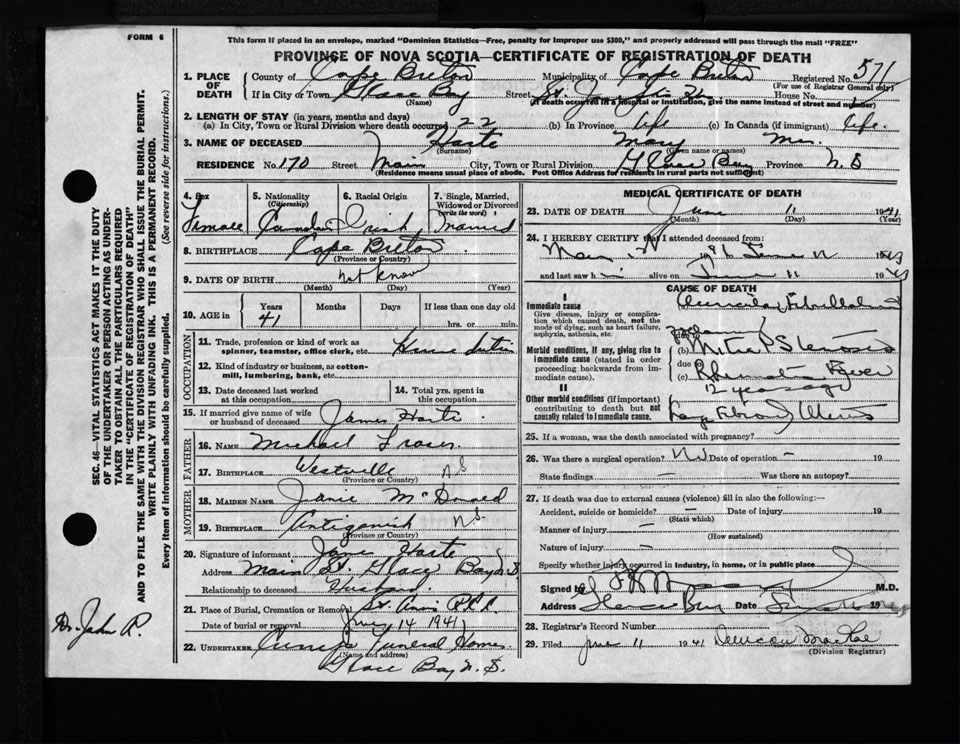 FORM 6
This form if placed in an envelope, marked "Dominion Statistics—Free, penalty for improper use $300," and properly addressed will pass through the mail "FREE"
PROVINCE OF NOVA SCOTIA—CERTIFICATE OF REGISTRATION OF DEATH
1. PLACE OF DEATH
County of Cape Breton Municipality of Cape Breton Registered No. 571
(For use of Registrar General only)
If in City or Town Glace Bay Street St. House No.
(Name) (If death occurred in a hospital or institution, give the name instead of street and number)
2. LENGTH OF STAY (in years, months and days)
(a) In City, Town or Rural Division where death occurred 22 (b) In Province life (c) In Canada (if immigrant) life.
3. NAME OF DECEASED Harte Mary Mrs.
(Surname) (Given name or names)
RESIDENCE No. 170 Street Main City, Town or Rural Division Glace Bay Province N S
(Residence means usual place of abode. Post Office Address for residents in rural parts not sufficient)
4. Sex 5. Nationality (Citizenship) 6. Racial Origin 7. Single, Married, Widowed or Divorced (write the word)
Female Canadian Irish Married
8. BIRTHPLACE Cape Breton
(Province or County)
9. DATE OF BIRTH not know
(Month) (Day) (Year)
10. AGE in Years Months Days If less than one day old
41 hrs. or min.
OCCUPATION
11. Trade, profession or kind of work as spinner, teamster, office clerk, etc. House duties
12. Kind of industry or business, as cotton-mill, lumbering, bank, etc.
13. Date deceased last worked at this occupation 14. Total yrs. spent in this occupation
15. If married give name of wife or husband of deceased James Harte
FATHER
16. NAME Michael Fraser
17. BIRTHPLACE Westville N S
(Province or Country)
MOTHER
18. MAIDEN NAME Janie McDonald
19. BIRTHPLACE Antigonish N.S.
(Province or Country)
20. Signature of informant Harte
Address Main St. Glace Bay N S
Relationship to deceased Husband
21. Place of Burial, Cremation or Removal St. Anns
Date of burial or removal June 14 1941
22. UNDERTAKER Funeral Home
(Name and address)
Glace Bay N. S.
MEDICAL CERTIFICATE OF DEATH
23. DATE OF DEATH June 11 1941
(Month) (Day) (Year)
24. I HEREBY CERTIFY that I attended deceased from:
and last saw h alive on June 11 19
CAUSE OF DEATH
I
Immediate cause Auricular Fibrillation
Give disease, injury or complication which caused death, not the mode of dying, such as heart failure, asphyxia, asthenia, etc.
Morbid conditions, if any, giving rise to immediate cause (stated in order proceeding backwards from immediate cause).
(b) Mitral Stenosis
due
(c) Rheumatic Fever
12 years ago
II
Other morbid conditions (if important) contributing to death but not causally related to immediate cause.
Large Fibroid Uterus
25. If a woman, was the death associated with pregnancy?
26. Was there a surgical operation? No Date of operation — 19
State findings Was there an autopsy?
27. If death was due to external causes (violence) fill in also the following:—
Accident, suicide or homicide? — Date of injury 19
(State which)
Manner of injury —
(How sustained)
Nature of injury —
Specify whether injury occurred in industry, in home, or in public place
Signed by M.D.
Address Glace Bay Date June 19
28. Registrar's Record Number
29. Filed June 11 1941 Duncan MacRae
(Division Registrar)
SEC. 46—VITAL STATISTICS ACT MAKES IT THE DUTY OF THE UNDERTAKER OR PERSON ACTING AS UNDERTAKER TO OBTAIN ALL THE PARTICULARS REQUIRED IN THE "CERTIFICATE OF REGISTRATION OF DEATH" AND TO FILE THE SAME WITH THE DIVISION REGISTRAR WHO SHALL ISSUE THE BURIAL PERMIT.
WRITE PLAINLY WITH UNFADING INK. THIS IS A PERMANENT RECORD.
Every item of information should be carefully supplied. (See reverse side for instructions.)
Dr. John R.